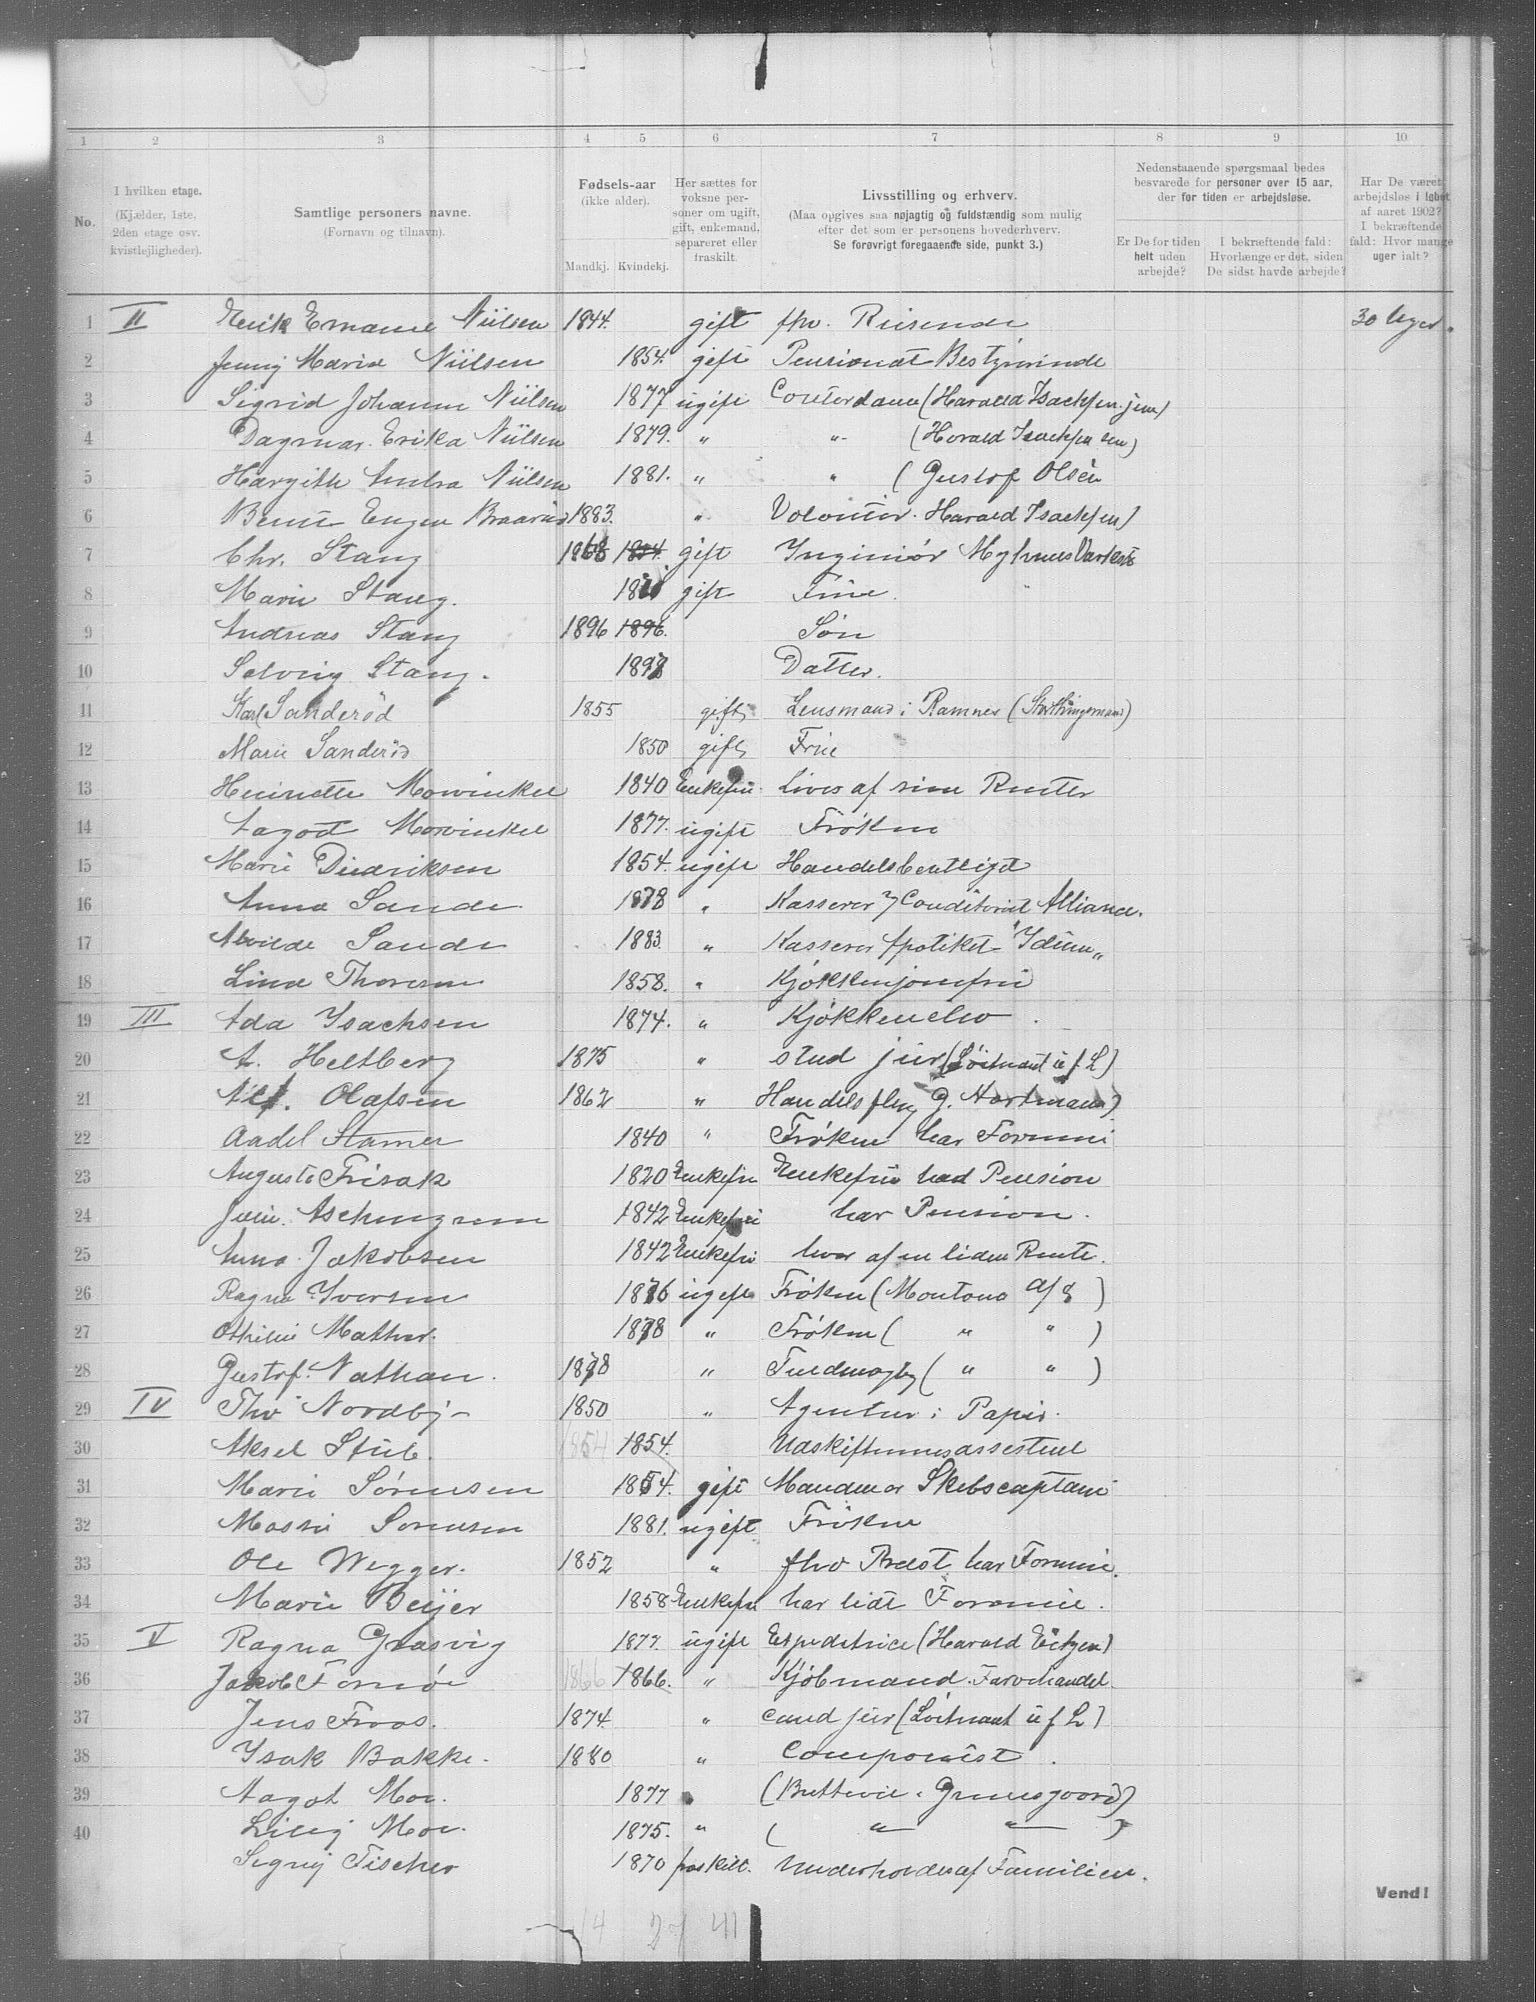 1 2 3 4 5 6 7 8 9 10
No. I hvilken etage. (Kjælder, 1ste, 2den etage osv. kvistlejligheder). Samtlige personers navne. (Fornavn og tilnavn). Fødsels-aar (ikke alder). Mandkj. Kvindekj. Her sættes for voksne personer om ugift, gift, enkemand, separeret eller fraskilt. Livsstilling og erhverv. (Maa opgives saa nøjagtig og fuldstændig som mulig efter det som er personens hovederhverv. Se forøvrigt foregaaende side, punkt 3.) Nedenstaaende spørgsmaal bedes besvarede for personer over 15 aar, der for tiden er arbejdsløse. Er De for tiden helt uden arbejde? I bekræftende fald: Hvorlænge er det, siden De sidst havde arbejde? Har De været arbejdsløs i løbet af aaret 1902? I bekræftende fald: Hvor mange uger ialt?
1 II Erik Emanuel Nielsen 1844. gift fhv. Reisende 30 Uger.
2 Jenny Marie Nielsen 1854. gift Pensionat Bestyrerinde
3 Sigrid Johanne Nielsen 1877 ugift Contordame (Harald Isachsen jun)
4 Dagmar Erika Nielsen 1879. " " (Harald Isachsen sen)
5 Margith Andrea Nielsen 1881. " " (Gustof Olsen
6 Bernt Eugen Braarud 1883. " Volontør. Harald Isachsen)
7 Chr. Stang 1868 1854. gift Ingeniør Myhrens Værksted
8 Marie Stang. 1870 gift Frue.
9 Andreas Stang 1896 1896. Søn
10 Solveig Stang. 1897 Datter.
11 Karl Sanderöd 1855 gift Lensmand i Ramnes (Storthingsmand)
12 Marie Sanderöd 1850 gift Frue
13 Henriette Mowinkel 1840 Enkefru Lever af sine Renter
14 Aagot Mowinkel 1877. ugift Frøken
15 Marie Diedriksen 1854. ugift Handelsberettiget
16 Anna Sande 1878 " Kasserer Conditoriet Alliance.
17 Alvilde Sande 1883. " Kasserer Apotiket "Idun"
18 Lina Thoresen 1858. " Kjøkkenjomfru
19 III Ada Isachsen 1874. " Kjøkkenelev
20 A. Heltberg 1875 " stud jur (Løitnant i f L)
21 Alf. Olafsen 1862 " Handels flmg G. Hartmann)
22 Aadel Stamer 1840 " Frøken har Formue
23 Augusta Frisak 1820 Enkefru Enkefru med Pension
24 Julie Aschengreen 1842 Enkefru har Pension.
25 Anna Jakobsen 1842 Enkefru lever af en liden Rente.
26 Ragna Iversen 1876 ugift Frøken (Montana A/S)
27 Othilie Mather. 1878 " Frøken ( " " )
28 Gustof Nathan. 1878 " Fuldmægtig ( " " )
29 IV Thv Nordby 1850 " Agentur i Papir.
30 Aksel Stub. 1854 1854. Udskiftningsassistent
31 Marie Sørensen 1854. gift Manden er Skibscaptain
32 Sørensen 1881. ugift Frøken
33 Ole Wegger. 1852 " fhv Præst har Formue.
34 Marie Beijer 1858 Enkefru har lidt Formue.
35 V Ragna Grasvig 1877. ugift Expeditrice (Harald Eitzen)
36 Jakob 1866 1866. " Kjøbmand. Farvehandel.
37 Jens Froas. 1874. " cand jur (Løitnant i f L)
38 Isak Bakke. 1880 " Componist.
39 Aagot Moe. 1877 " ( Grensegaard)
40 Lilly Moe. 1875. " ( " " )
Signy Fischer 1870 fraskilt. Underholdes af Familien.
Vend!
14 27 41